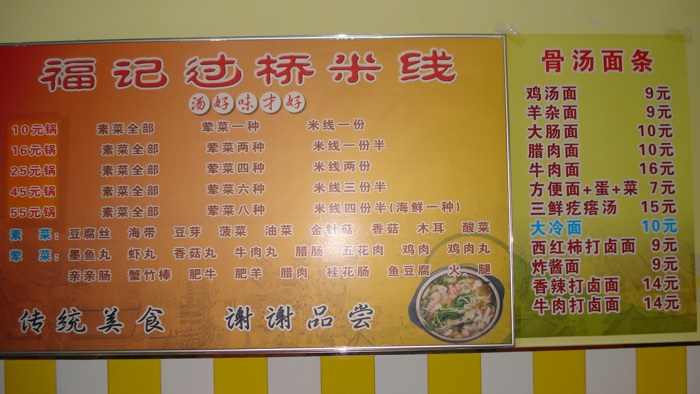 福记过桥米线
汤好味才好
10元锅 素菜全部 荤菜一种 米线一份
16元锅 素菜全部 荤菜两种 米线一份半
25元锅 素菜全部 荤菜四种 米线两份
45元锅 素菜全部 荤菜六种 米线三份半
55元锅 素菜全部 荤菜八种 米线四份半(海鲜一种)
素菜: 豆腐丝 海带 豆芽 菠菜 油菜 金针菇 香菇 木耳 酸菜
荤菜: 墨鱼丸 虾丸 香菇丸 牛肉丸 腊肠 五花肉 鸡肉 鸡肉丸
亲亲肠 蟹竹棒 肥牛 肥羊 腊肉 桂花肠 鱼豆腐 火腿
传统美食 谢谢品尝
骨汤面条
鸡汤面 9元
羊杂面 9元
大肠面 10元
腊肉面 10元
牛肉面 16元
方便面+蛋+菜 7元
三鲜疙瘩汤 15元
大冷面 10元
西红柿打卤面 9元
炸酱面 9元
香辣打卤面 14元
牛肉打卤面 14元